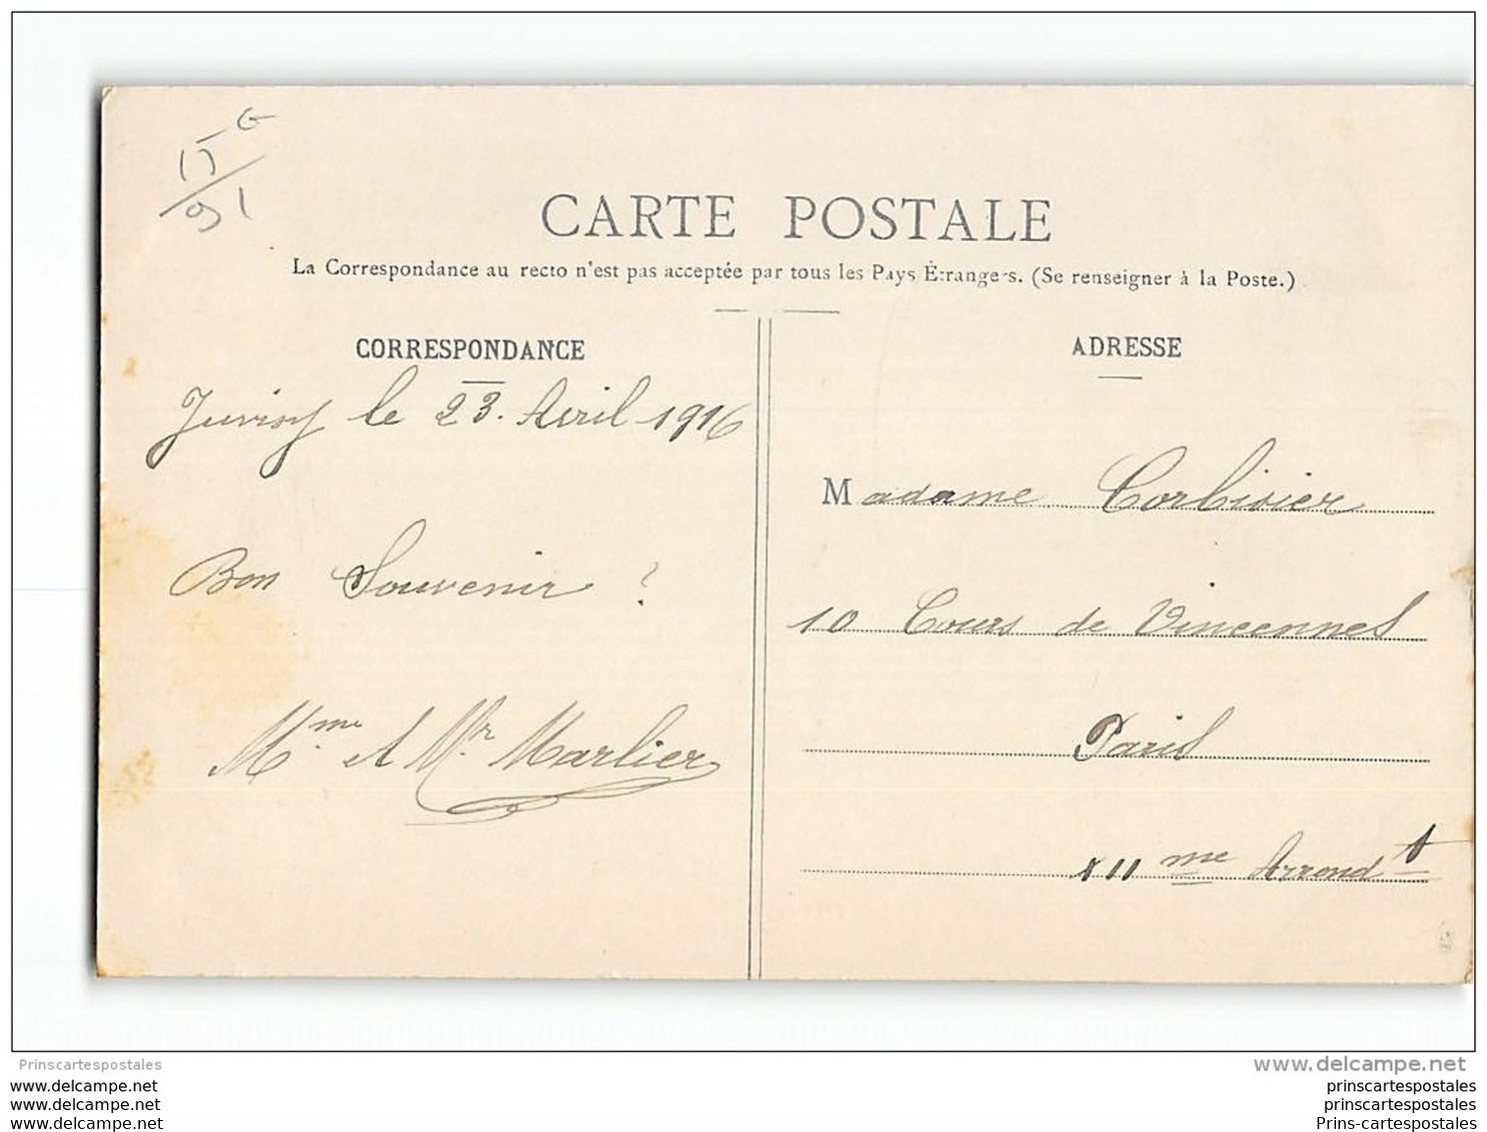 15 G
91
CARTE POSTALE
La Correspondance au recto n'est pas acceptée par tous les Pays Étrangers. (Se renseigner à la Poste.)
CORRESPONDANCE
Juvisy le 23. Avril 1916
Bon Souvenir ?
Mme et Mr Marlier
ADRESSE
Madame Corbisier
10 Cours de Vincennes
Paris
XIIme Arrondt
Prinscartespostales
www.delcampe.net
www.delcampe.net
www.delcampe.net
www.delcampe.net
prinscartespostales
prinscartespostales
Prins-cartespostales